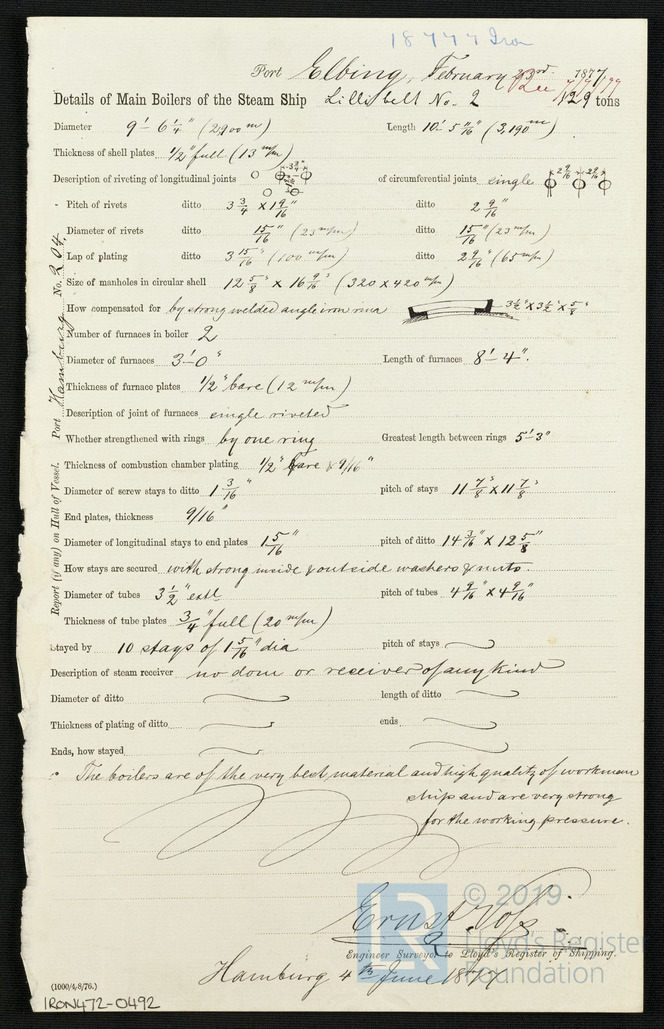 18777 Iron
Port Elbing, February 23rd. 1877
Details of Main Boilers of the Steam Ship Lillebelt No. 2 129 tons
Diameter 9'- 6 1/4" (2,900 m) Length 10'- 5 11/16" (3,190 m)
Thickness of shell plates 1/2" full (13 m/m)
Description of riveting of longitudinal joints 3 3/4" of circumferential joints single 2 9/16" 2 9/16"
Pitch of rivets ditto 3 3/4 x 1 9/16" ditto 2 9/16"
Diameter of rivets ditto 15/16" (23 m/m) ditto 15/16" (23 m/m)
Lap of plating ditto 3 15/16" (100 m/m) ditto 2 9/16" (65 m/m)
Size of manholes in circular shell 12 5/8" x 16 9/16" (320 x 420 m/m)
How compensated for by strong welded angle iron 3 1/2" x 3 1/2" x 5/8"
Number of furnaces in boiler 2
Diameter of furnaces 3'-0" Length of furnaces 8'- 4".
Thickness of furnace plates 1/2" bare (12 m/m)
Description of joint of furnaces single riveted
Whether strengthened with rings by one ring Greatest length between rings 5'-3"
Thickness of combustion chamber plating 1/2" bare & 9/16"
Diameter of screw stays to ditto 1 3/16" pitch of stays 11 7/8 x 11 7/8"
End plates, thickness 9/16"
Diameter of longitudinal stays to end plates 1 5/16" pitch of ditto 14 3/16" x 12 5/8"
How stays are secured with strong inside & outside washers & nuts.
Diameter of tubes 3 1/2" extl pitch of tubes 4 9/16" x 4 9/16"
Thickness of tube plates 3/4" full (20 m/m)
Stayed by 10 stays of 1 5/16" dia pitch of stays
Description of steam receiver no dom or receiver of any kind
Diameter of ditto length of ditto
Thickness of plating of ditto ends
Ends, how stayed
The boilers are of the very best material and high quality of workman
ship and are very strong
for the working pressure.
Ernst Voss
Engineer Surveyor to Lloyd's Register of Shipping.
Hamburg 4th June 1877
(1000/4/8/76.)
IRON472-0492
Report (if any) on Hull of Vessel. Port Hamburg No. 204
© 2019
Lloyd's Register
Foundation
LR